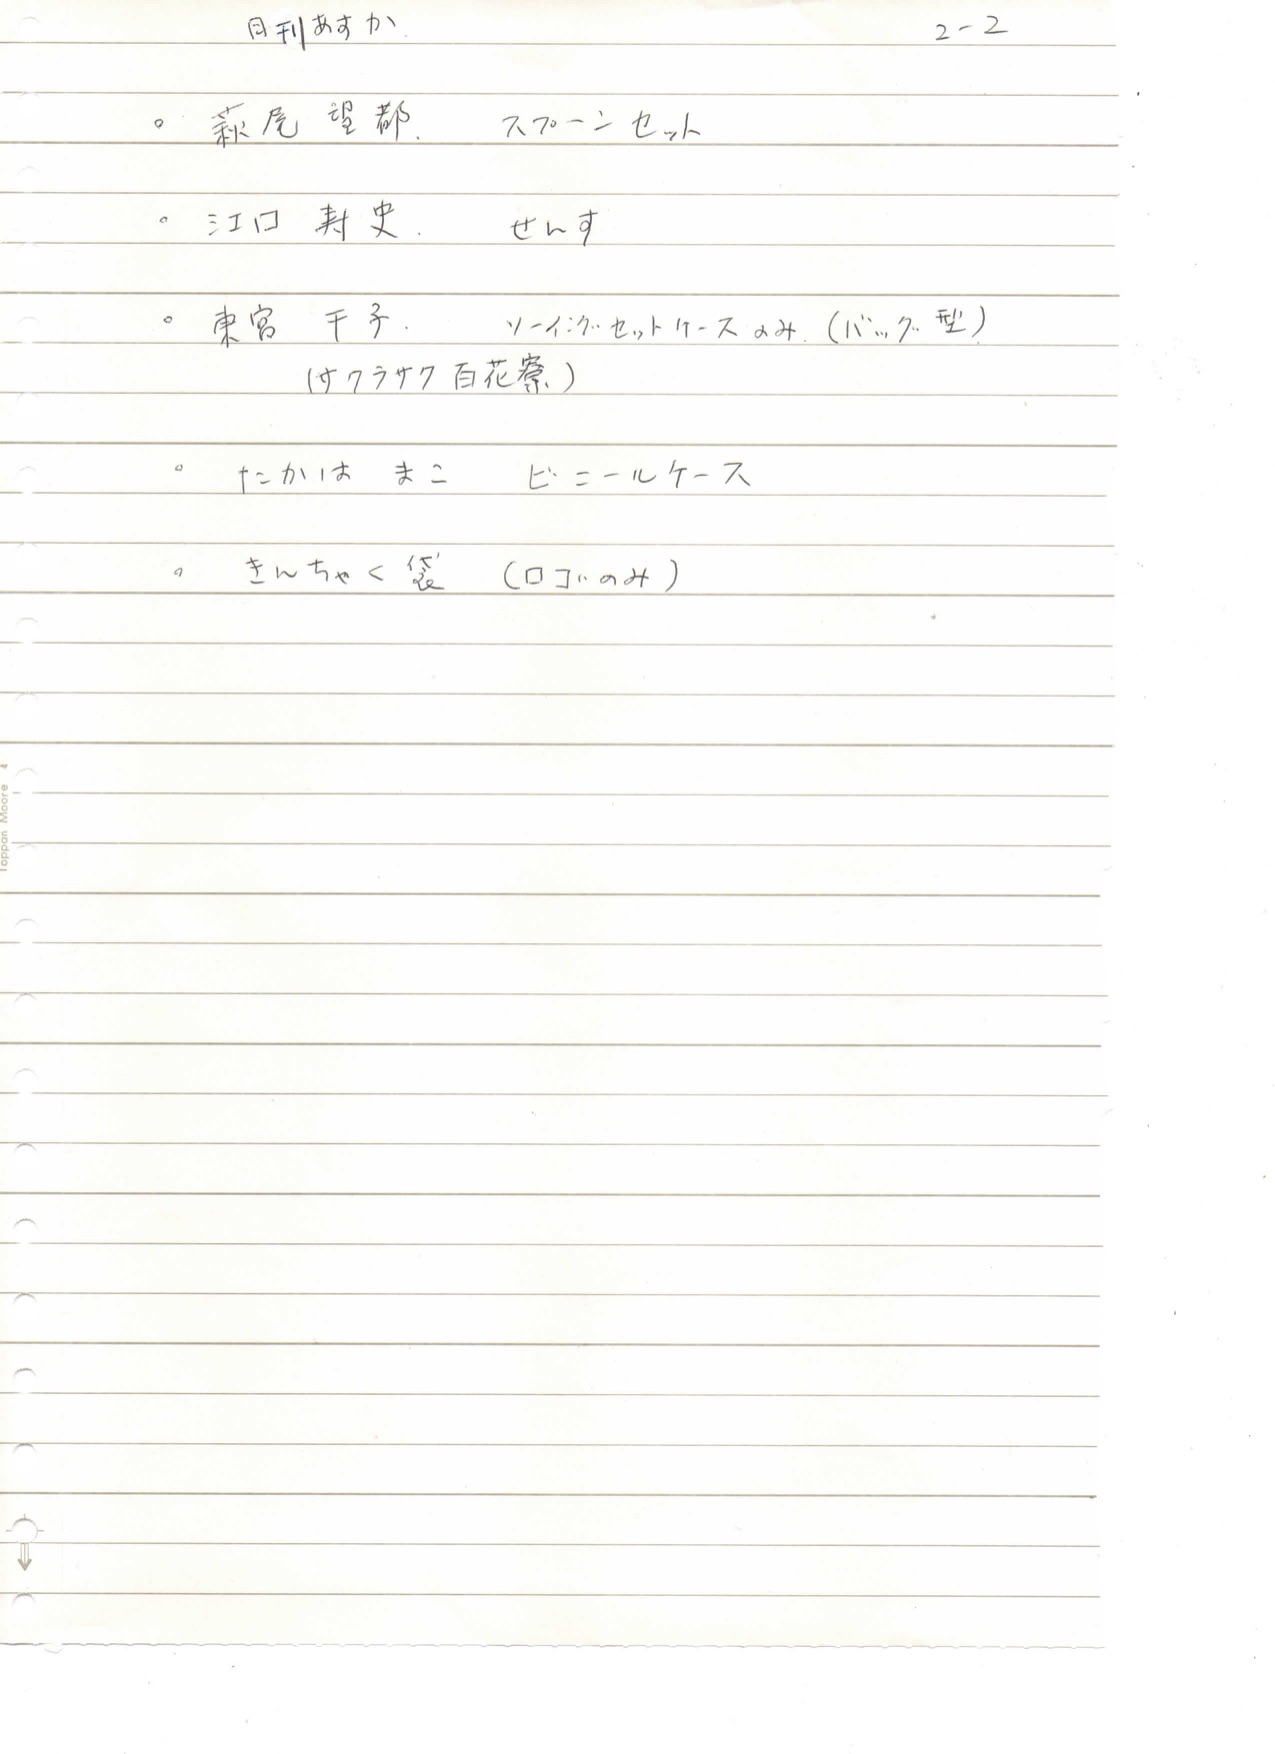 月刊あすか 2-2
。萩尾 望都. スプーンセット
。江口 寿史. せんす
。東宮 千子. ソーイングセットケースのみ.(バッグ型)
(サクラサク百花寮)
。たかは まこ ビニールケース
。きんちゃく袋 (ロゴのみ)
Toppan Moore